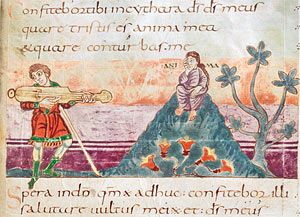 onfitebor tibi incythara ds ds meus
quare tristis es anima mea
& quare conturbas me
ANI MA
Spera indo qm adhuc confitebor illi
salutare uultus mei & ds meus